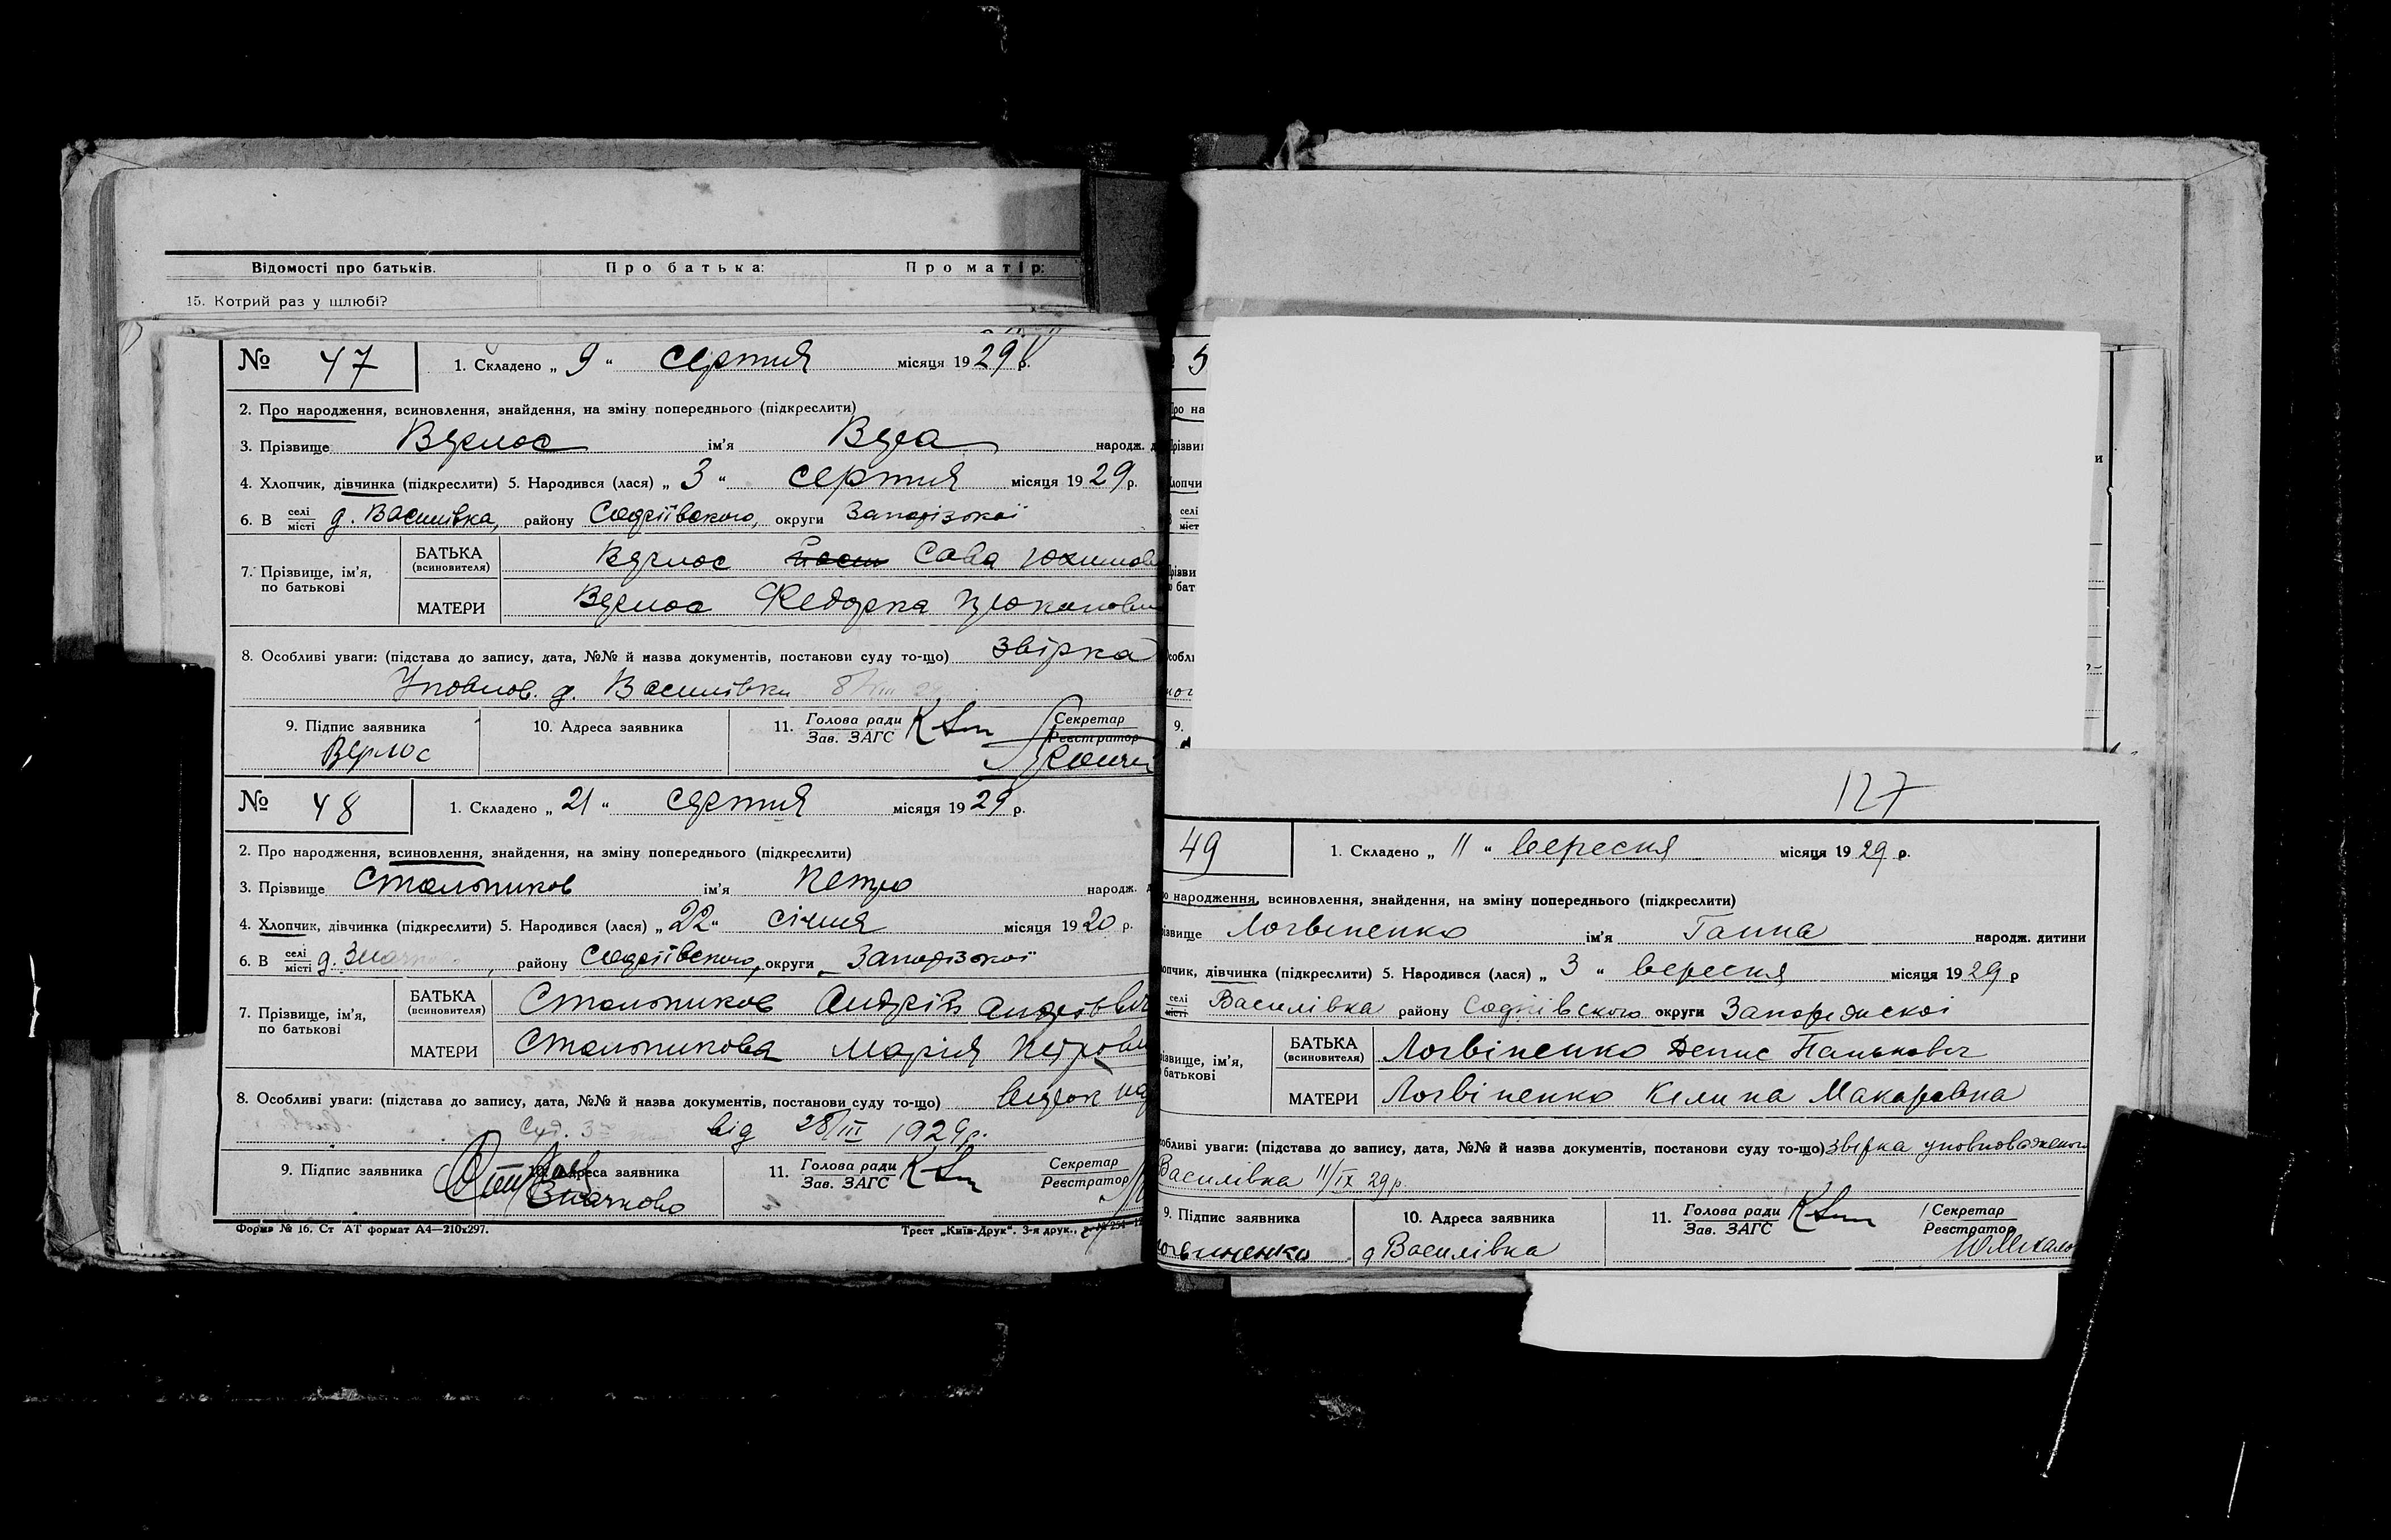 Відомості про батьків. Про батька: Про матір:
15. Котрий раз у шлюбі?
№ 47 1. Складено „ 9 “ серпня місяця 1929 р.
2. Про народження, всиновлення, знайдення, на зміну попереднього (підкреслити)
3. Прізвище Верлос ім’я Вера народж.
4. Хлопчик, дівчинка (підкреслити) 5. Народився (лася) „ 3 “ серпня місяця 1929 р.
6. В селі місті д. Василівка, району Софіївського, округи Запорізької
7. Прізвище, ім’я, по батькові БАТЬКА (всиновителя) Верлос Сава
МАТЕРИ Верлос
8. Особливі уваги: (підстава до запису, дата, №№ й назва документів, постанови суду то-що) звірка
Уповнов. д. Василівки
9. Підпис заявника 10. Адреса заявника 11. Голова ради Зав. ЗАГС Секретар Реєстратор
Верлос
№ 48 1. Складено „ 21 “ серпня місяця 1929 р.
2. Про народження, всиновлення, знайдення, на зміну попереднього (підкреслити)
3. Прізвище Стольников ім’я Петро народж.
4. Хлопчик, дівчинка (підкреслити) 5. Народився (лася) „ 22 “ січня місяця 1920 р.
6. В селі місті д. району Софіївського, округи Запорізької
7. Прізвище, ім’я, по батькові БАТЬКА (всиновителя) Стольников Андрій Андрієвич
МАТЕРИ Стольникова Марія
8. Особливі уваги: (підстава до запису, дата, №№ й назва документів, постанови суду то-що)
від 28/III 1929р.
9. Підпис заявника 10. Адреса заявника 11. Голова ради Зав. ЗАГС Секретар Реєстратор
Значково
Форма № 16. Ст АТ формат А4—210х297. Трест „Київ-Друк“. 3-я друк.,
127
49 1. Складено „ 11 “ вересня місяця 1929 р.
народження, всиновлення, знайдення, на зміну попереднього (підкреслити)
Логвіненко ім’я Ганна народж. дитини
дівчинка (підкреслити) 5. Народився (лася) „ 3 “ вересня місяця 1929 р
селі місті Василівка району Софіївского округи Запоріжскоі
ім’я, БАТЬКА (всиновителя) Логвіненко Денис Панькович
батькові МАТЕРИ Логвіненко Килина Макаровна
уваги: (підстава до запису, дата, №№ й назва документів, постанови суду то-що) звірка уповноваженого
Василівка 11/IX 29 р.
9. Підпис заявника 10. Адреса заявника 11. Голова ради Зав. ЗАГС Секретар Реєстратор
д Василівка